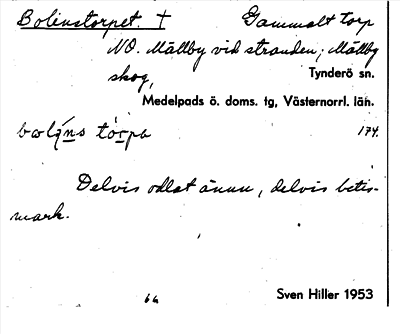 Bolinstorpet. † Gammalt torp
NO. Mällby vid stranden; Mällby
skog, Tynderö sn.
Medelpads ö. doms. tg, Västernorrl. län.
174.
Delvis odlat ännu, delvis betis-
mark.
64 Sven Hiller 1953